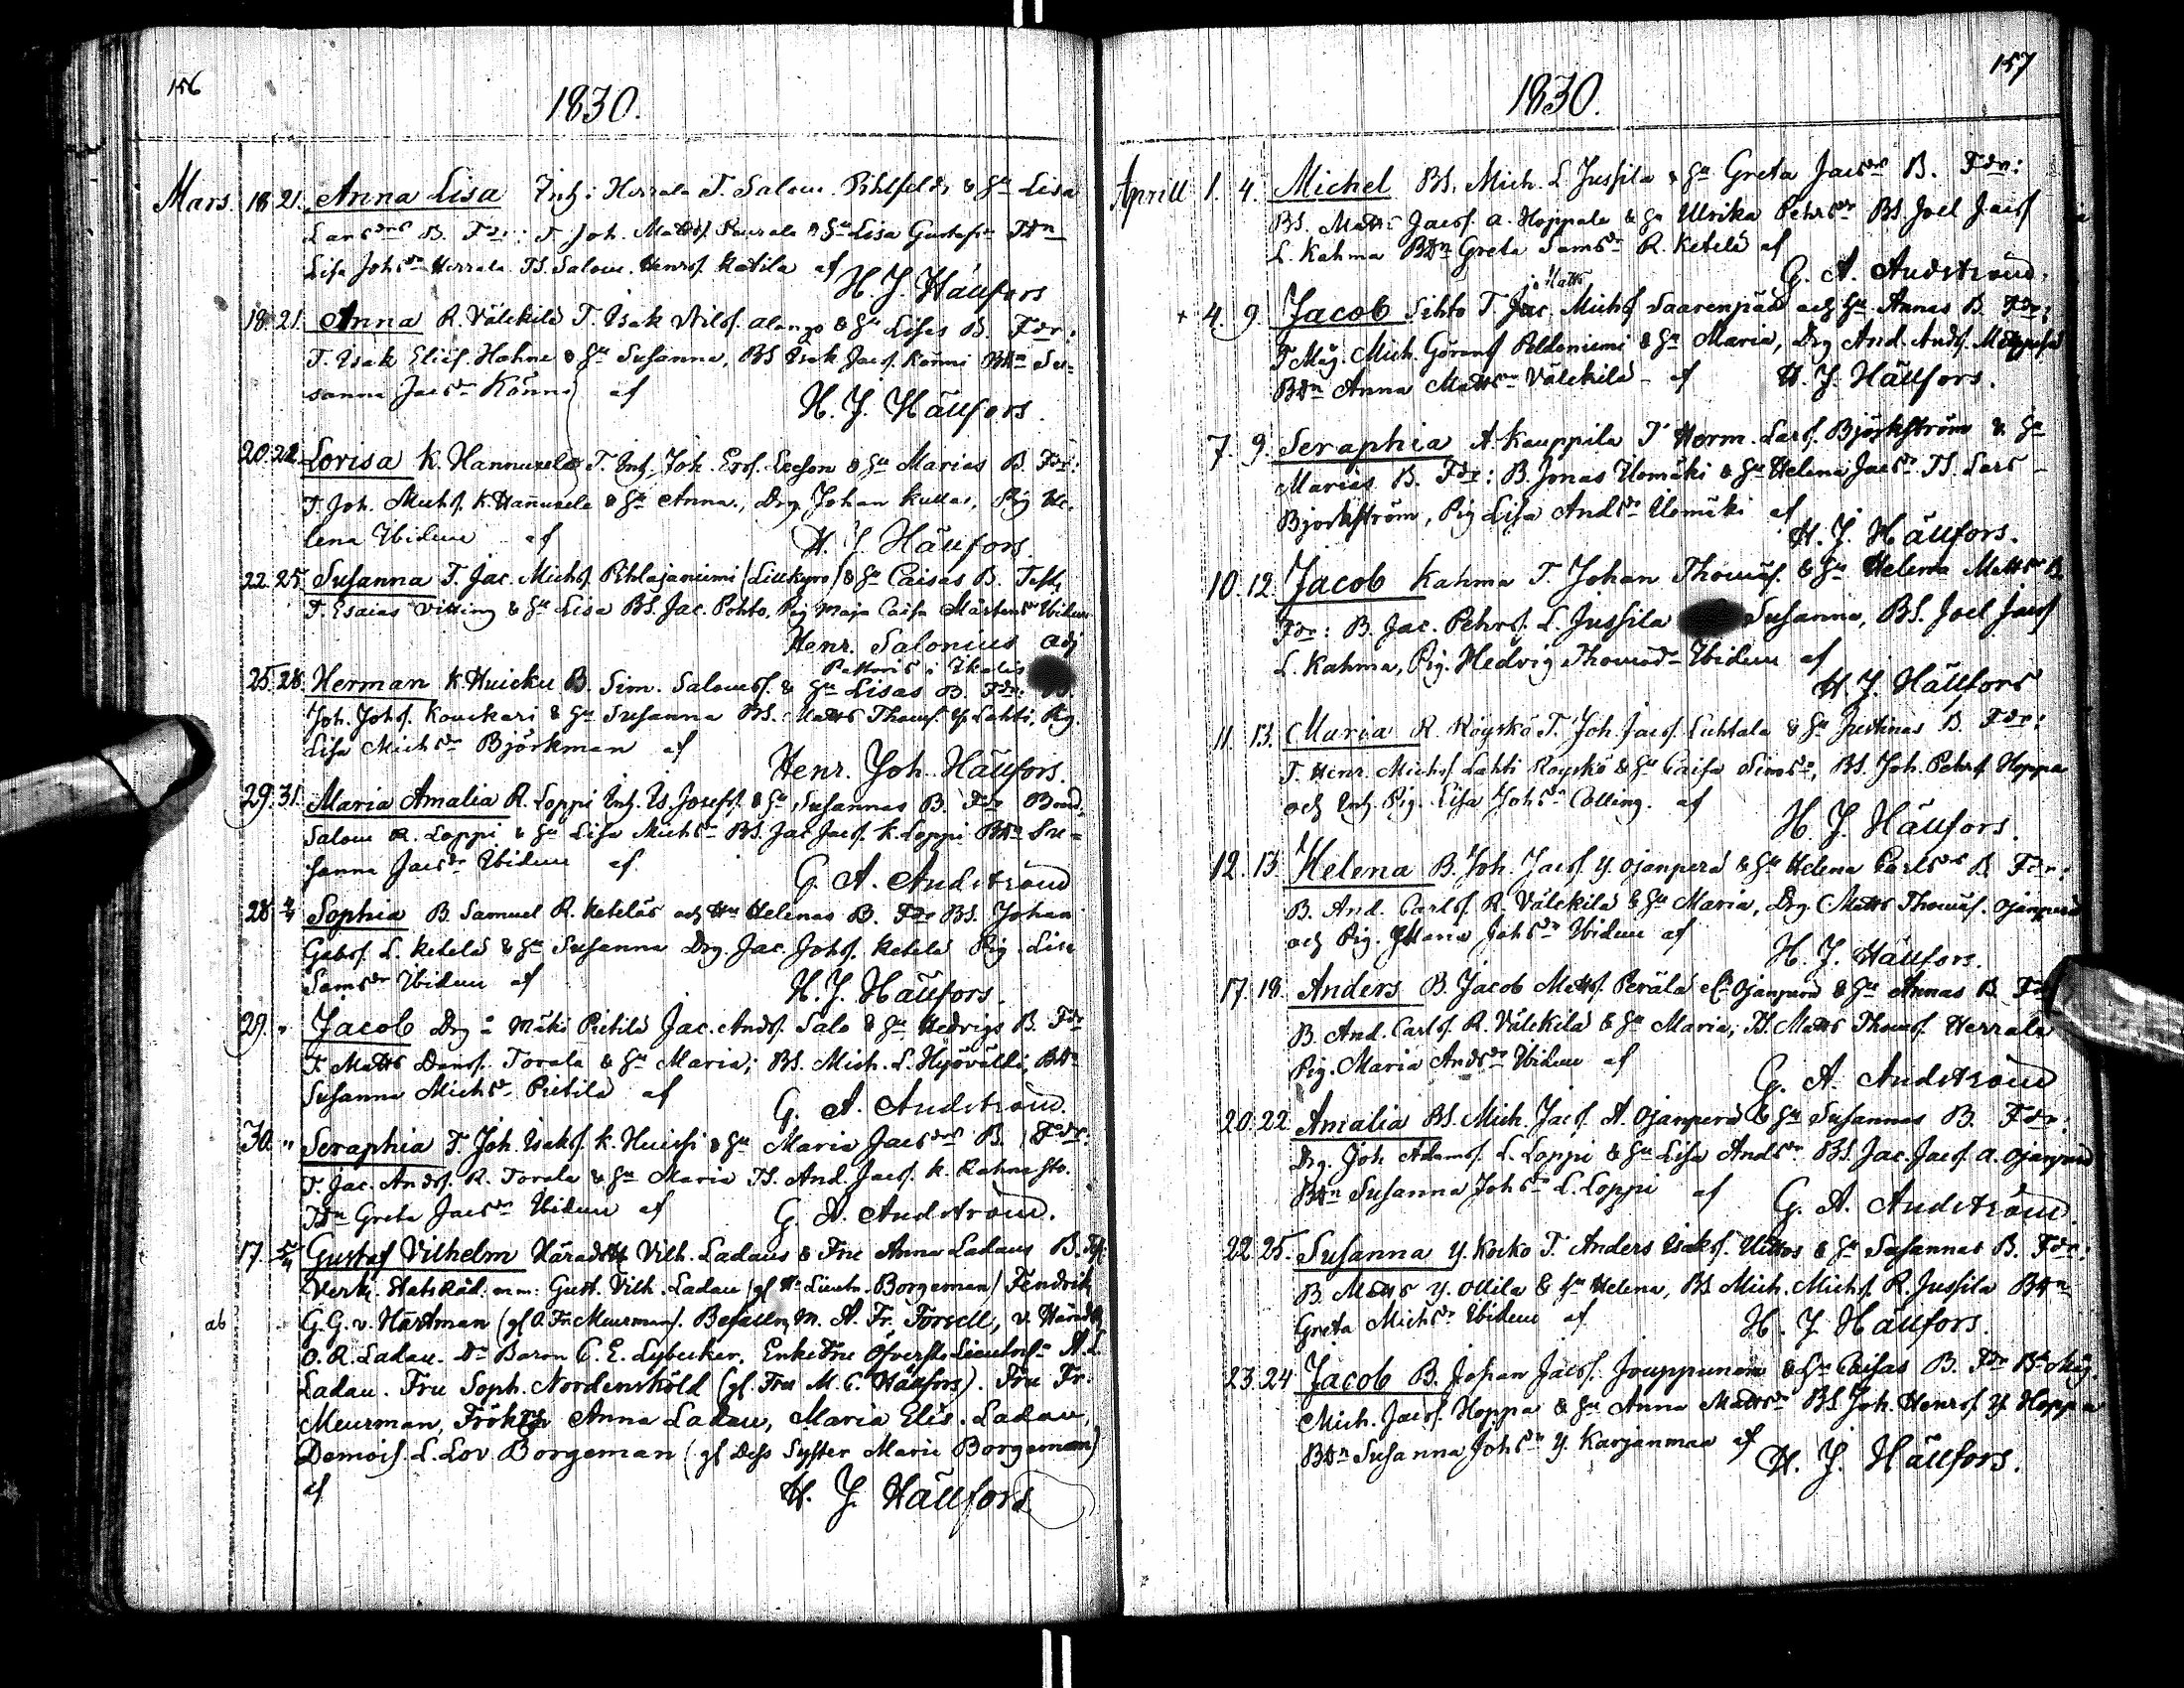 156
1830.
Mars. 18. 21. Anna Lisa Inh: Herrala T. Salom. Pihlfelds & Hu Lisa
Larsdrs B. Fdr: T. Joh. Matts. & Hu Lisa Gustafsdr TDn
Lisa Johsdr Herrala TS. Salom. Henrs. Katila af
H. J. Hällfors
18. 21. Anna R. Välekilä T. Isak Nils. Alango & Hu Lisas B. Fdr:
T. Isak Elies. Hahne & Hu Susanna, BS Isak Jacs. Könni BDn Su-
sanna Jacsdr Könni af
H. J. Hällfors.
20. 22. Lovisa K. Hannuxela T. Inh. Joh. Ers. Leeson & Hu Marias B. Fdr:
T. Joh. Michs. K. Hañuxela & Hu Anna., Drg Johan Kullas, Pig He-
lena Ibidem af
H. J. Hällfors.
22. 25. Susanna T. Jac. Michs. Pihlajaniemi (Lillkyro) & Hu Caisas B. Test;
T. Esaias Vitting & Hu Lisa BS. Jac. Pohto, Pig Maja Caisa Mårtensdr Ibidem
Henr. Salonius adj
Pastoris i Ikalis
25. 28. Herman K. Huicku B. Sim. Saloms. & Hu Lisas B. Fdr:
Joh. Johs. Kouckari & Hu Susanna BS. Matts Thoms. Y. Lahti, Pig.
Lisa Michsdr Björkman af
Henr. Joh. Hällfors.
29. 31. Maria Amalia R. Loppi Inh. Is. Josefs. & Hu Susannas B. Fdr Bond.
Salom R. Loppi & Hu Lisa Michsdr BS. Jac. Jacs. K. Loppi BDn Su-
sanna Jacsdr Ibidem af
G. A. Andström
28. Sophia B. Samuel R. Keteläs och Hu Helenas B. Fdr BS. Johan
Gabrs. L. Ketelä & Hu Susanna Drg. Jac. Johs. Ketelä Pig Lisa
Samsdr Ibidem af
H. J. Hällfors.
29. " Jacob Drg å Mäki Pietilä Jac. Ands. Salo & Hu Hedvigs B. Fdr
T. Matts Dans. Torala & Hu Maria; BS. Mich. L. Hyövälti, BDn
Susanna Michsdr Pietilä af
G. A. Andström.
30. " Seraphia T. Joh. Isaks. K. Huissi & Hu Maria Jacsdrs B. Fdr:
T. Jac. Ands. R. Torala & Hu Maria TS. And. Jacs. K. Rahnasto.
TDn Greta Jacsdr Ibidem af
G. A. Andström.
17. Gustaf Vilhelm Häradsh Vilh. Ladaus & Fru Anna Ladaus B. Tst:
Verkl. Statsråd. m.m: Gust. Vilh. Ladau (gl Hr Lieutn. Borgeman) Fendrik
G. G. v. Hartman (gl O. Fr. Meurman). Befallnm. A. Fr. Forsell, v. Häradsh
O. R. Ladau. Dr Baron C. E. Lybecker. Enkefru ÖfversteLieutn A. L
Ladau. Fru Soph. Nordensköld (gl. Fru M. C. Hällfors). Fru Fr.
Meurman, Frökr Anna Ladau, Maria Elis. Ladau,
Demois. L. Lov. Borgeman (gl Dess Syster Marie Borgeman)
af
H. J. Hällfors
ab
157
1830.
Aprill 1. 4. Michel BS. Mich. L. Jussila & Hu Greta Jacsdrs B. Fdr:
BS. Matts Jacs. A. Hoppala & Hu Ulrika Pehrsdr BS. Joel Jacs
L. Kahma BDn Greta Samsdr R. Ketelä af
G. A. Andström.
Matts
+ 4. 9. Jacob Sihto T. Jac Michs Saarenpää och Hu Annas B. Fdr:
T. Måg. Mich. Görans Peldoniemi & Hu Maria, Drg And. Ands.
BDn Anna Mattsdr Välekilä af H. J. Hällfors.
7. 9. Seraphia A. Kauppila T Herm. Lars. Björkström & Hu
Marias B. Fdr: B. Jonas Uomäki & Hu Helena Jacsdr TS. Lars
Björkström, Pig Lisa Andsdr Uomäki af
H. J. Hällfors.
10. 12. Jacob Kahma T. Johan Thomæs. & Hu Helena Mattsdr B.
Fdr: B. Jac. Pehrs. L. Jussila Susanna, BS. Joel Jacs
L. Kahma, Pig. Hedvig Thomædr Ibidem af
H. J. Hällfors
11. 13. Maria R. Röyskö T. Joh. Jacs. Luhtala & Hu Justinas B. Fdr:
T. Henr. Michs. Lahti Röyskö & Hu Caisa Simsdr, BS. Joh. Pehrs Hoppa
och Inh. Pig. Lisa Johsdr Colling. af
H. J. Hällfors.
12. 13. Helena B. Joh. Jacs. Y. Ojanperä & Hu Helena Carlsdrs B. Fdr:
B. And. Carls. R. Välekilä & Hu Maria, Drg. Matts Thomæs. Ojanperä
och Pig. Maria Johsdr Ibidem af
H. J. Hällfors.
17. 18. Anders B. Jacob Matts. Perälä el. Ojanperä & Hu Annas B. Fdr
B. And. Carls. R. Välekilä & Hu Maria; TS. Matts Thoms. Herrala
Pig. Maria Andsdr Ibidem af
G. A. Andström
20. 22. Amalia BS. Mich. Jacs. A. Ojanperä & Hu Susannas B. Fdr:
Drg. Joh Adams. L. Loppi & Hu Lisa Andsdr BS. Jac. Jacs. A. Ojanperä
BDn Susanna Johsdr L. Loppi af
G. A. Andström.
22. 25. Susanna Y. Kocko T. Anders Isaks. Uittos & Hu Susannas B. Fdr:
B. Matts Y. Ollila & Hu Helena, BS. Mich. Michs. R. Jussila BDn
Greta Michsdr Ibidem af
H. J. Hällfors.
23. 24. Jacob B. Johan Jacs. Jouppunen & Hu Caisas B. Fdr B. Måg.
Mich. Jacs. Hoppa & Hu Anna Mattsdr BS. Joh. Henrs. Y. Hoppa
BDn Susanna Johsdr Y. Karjanmaa af
H. J. Hällfors.